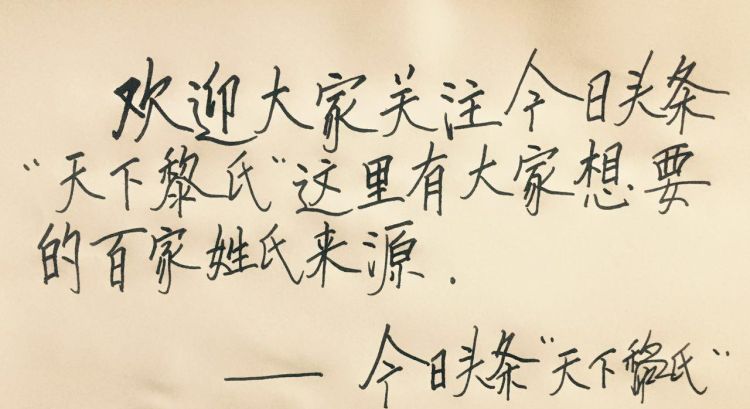 欢迎大家关注今日头条
“天下黎氏”这里有大家想要
的百家姓氏来源.
——今日头条“天下黎氏”